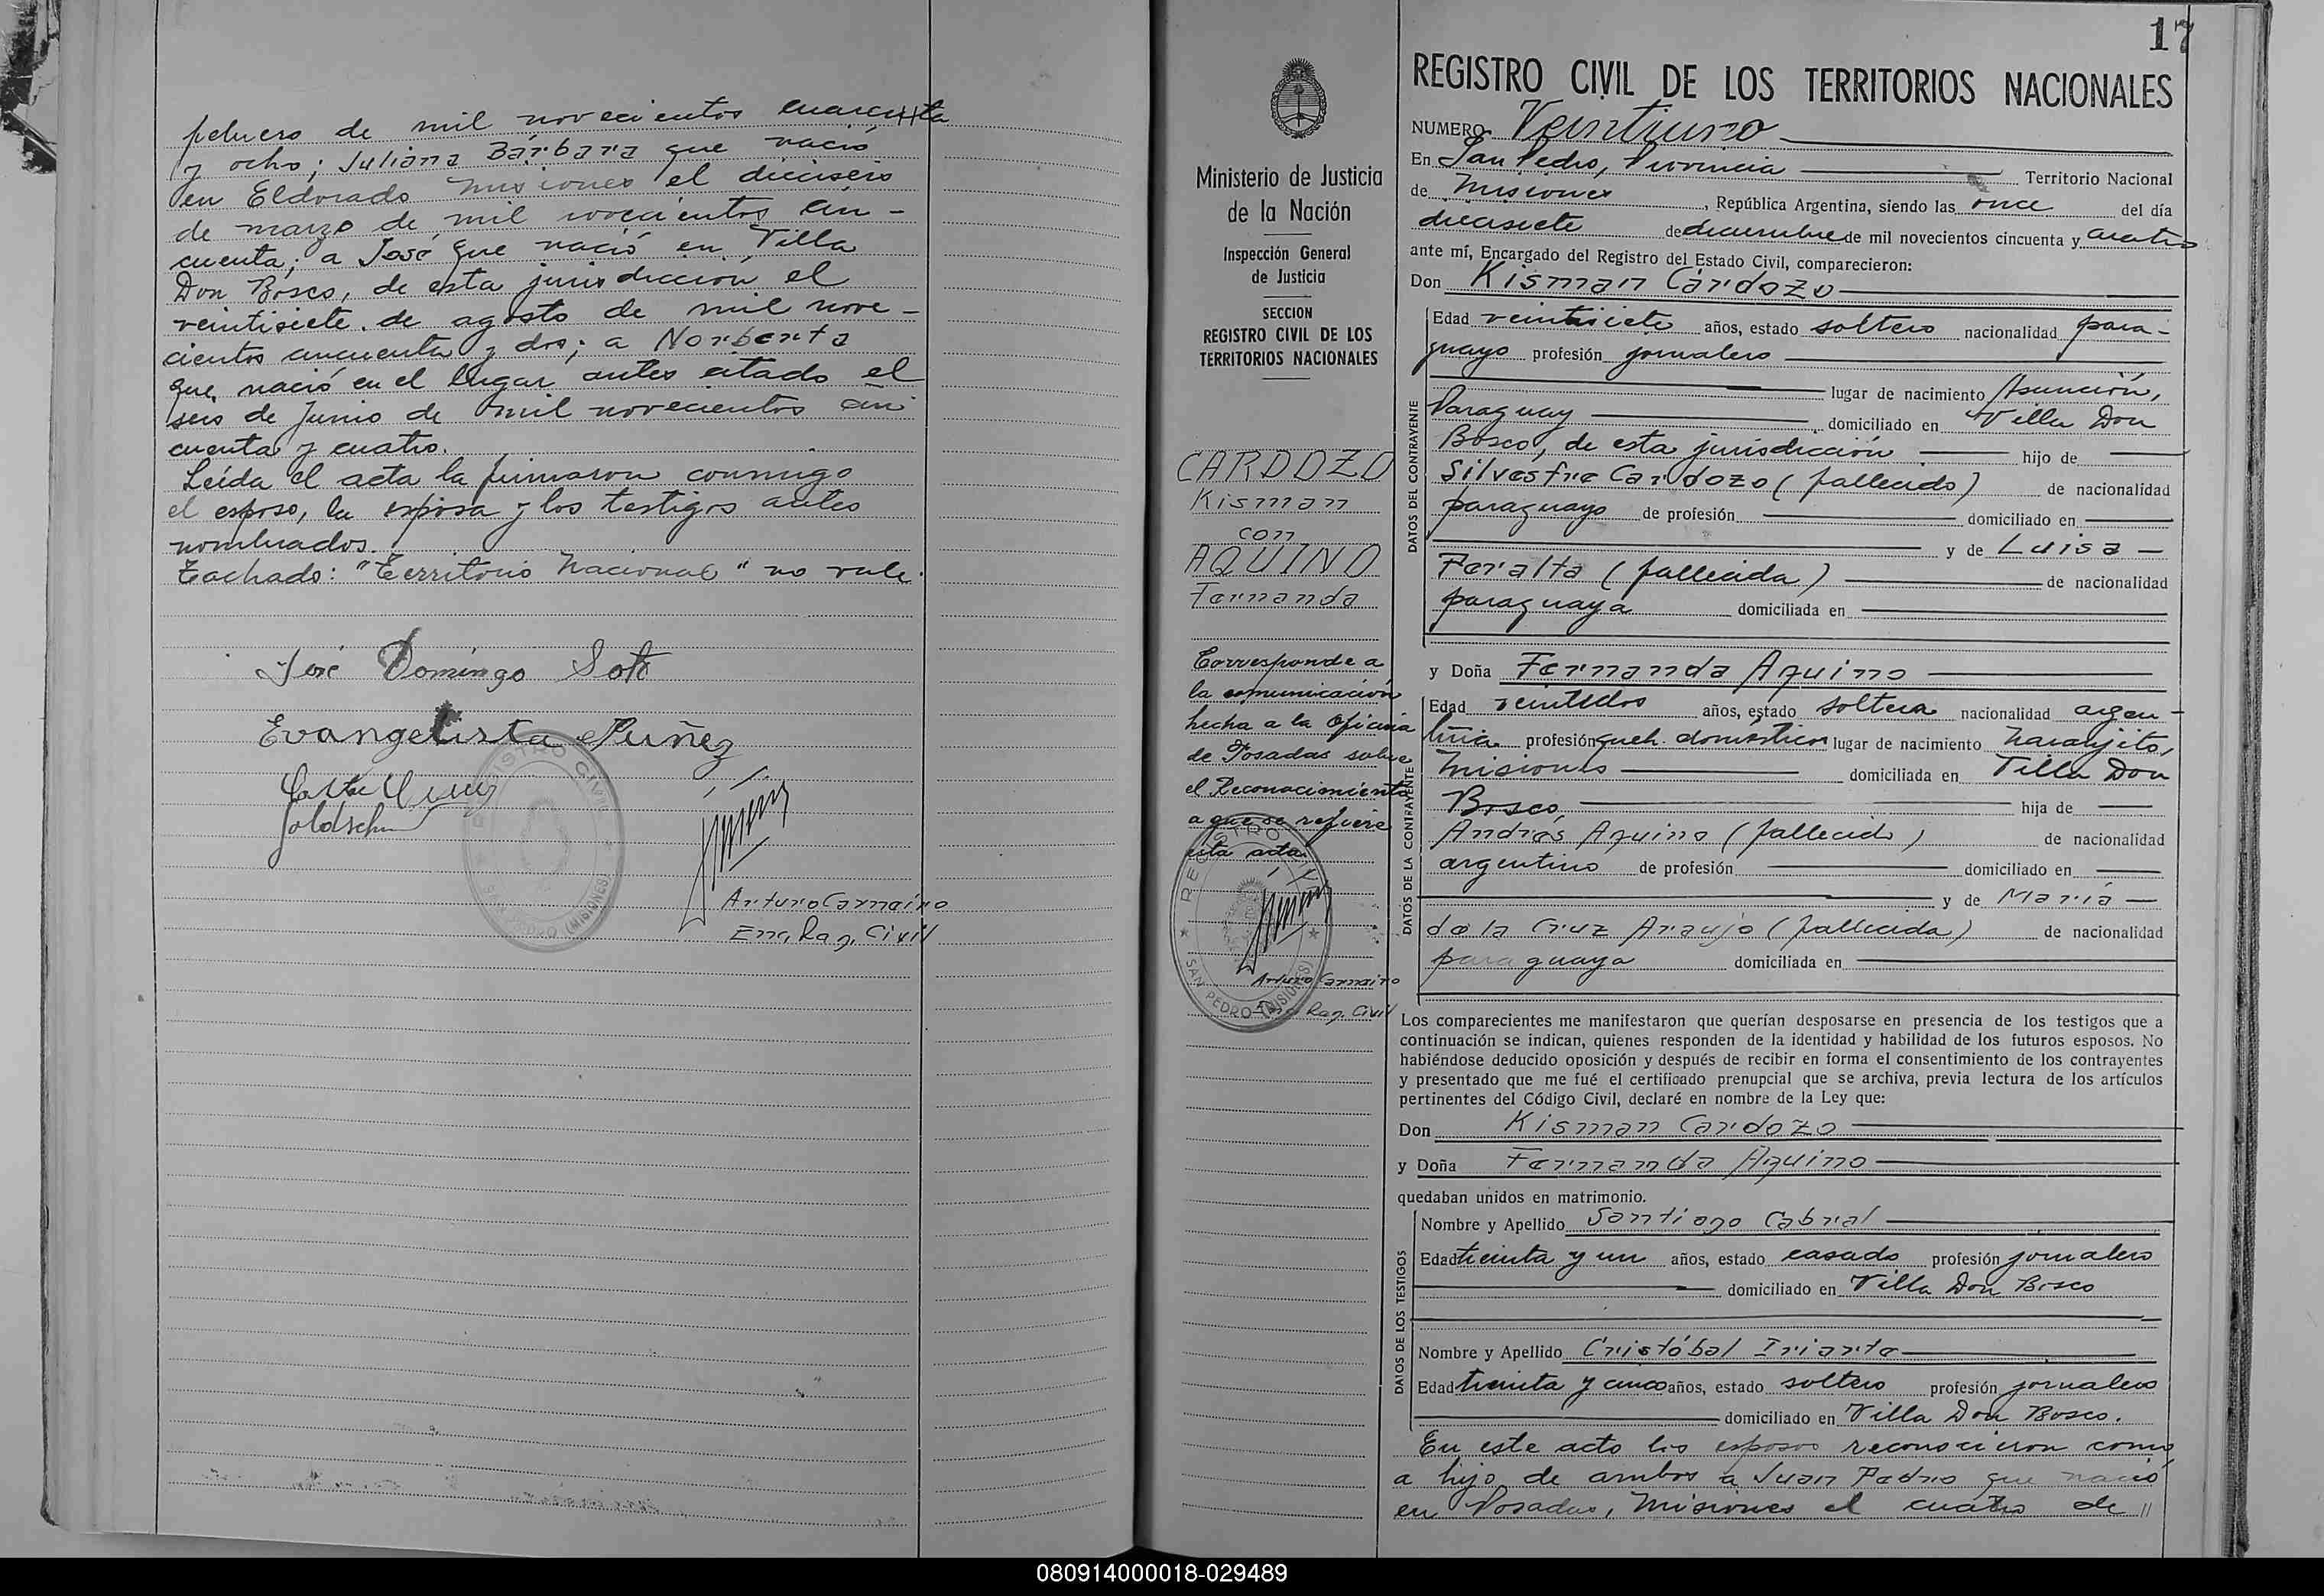 febrero de mil novecientos cuarenta
y ocho; Juliana Bárbara que nació
en Eldorado Misiones el dieciseis
de marzo de mil novecientos cin-
cuenta; a José que nació en Villa
Don Bosco, de esta jurisdicción el
veintisiete de agosto de mil nove-
cientos cincuenta y dos; a Norberta
que nació en el lugar antes citado el
seis de Junio de mil novecientos cin
cuenta y cuatro.
Leída el acta la firmaron conmigo
el esposo, la esposa y los testigos antes
nombrados.
Tachado: "Territorio Nacional" no vale.
José Domingo Soto
Evangelista Nuñez
Arturo Carnaino
Enc. Reg. Civil
REGISTRO CIVIL
SAN PEDRO (MISIONES)
17
Ministerio de Justicia
de la Nación
Inspección General
de Justicia
SECCION
REGISTRO CIVIL DE LOS
TERRITORIOS NACIONALES
CARDOZO
Kisman
con
AQUINO
Fernanda
Corresponde a
la comunicación
hecha a la Oficina
de Posadas sobre
el Reconocimiento
a que se refiere
esta acta.
REGISTRO
SAN PEDRO (MISIONES)
Arturo Carnaino
Enc. Reg. Civil
REGISTRO CIVIL DE LOS TERRITORIOS NACIONALES
NUMERO Veintiuno
En San Pedro, Provincia Territorio Nacional
de Misiones, República Argentina, siendo las once del día
diecisiete de diciembre de mil novecientos cincuenta y cuatro
ante mí, Encargado del Registro del Estado Civil, comparecieron:
Don Kisman Cardozo
DATOS DEL CONTRAYENTE
Edad veintisiete años, estado soltero nacionalidad para-
guayo profesión jornalero
lugar de nacimiento Asunción,
Paraguay domiciliado en Villa Don
Bosco, de esta jurisdicción hijo de
Silvestre Cardozo (fallecido) de nacionalidad
paraguayo de profesión domiciliado en
y de Luisa
Peralta (fallecida) de nacionalidad
paraguaya domiciliada en
y Doña Fernanda Aquino
DATOS DE LA CONTRAYENTE
Edad veintidos años, estado soltera nacionalidad argen-
tina profesión queh. domésticos lugar de nacimiento Naranjito,
Misiones domiciliada en Villa Don
Bosco hija de
Andrés Aquino (fallecido) de nacionalidad
argentino de profesión domiciliado en
y de María
de la Cruz Araujo (fallecida) de nacionalidad
paraguaya domiciliada en
Los comparecientes me manifestaron que querían desposarse en presencia de los testigos que a
continuación se indican, quienes responden de la identidad y habilidad de los futuros esposos. No
habiéndose deducido oposición y después de recibir en forma el consentimiento de los contrayentes
y presentado que me fué el certificado prenupcial que se archiva, previa lectura de los artículos
pertinentes del Código Civil, declaré en nombre de la Ley que:
Don Kisman Cardozo
y Doña Fernanda Aquino
quedaban unidos en matrimonio.
DATOS DE LOS TESTIGOS
Nombre y Apellido Santiago Cabral
Edad treinta y un años, estado casado profesión jornalero
domiciliado en Villa Don Bosco
Nombre y Apellido Cristóbal Iriarte
Edad treinta y cinco años, estado soltero profesión jornalero
domiciliado en Villa Don Bosco.
En este acto los esposos reconocieron como
a hijo de ambos a Juan Pedro que nació
en Posadas, Misiones el cuatro de //
080914000018-029489